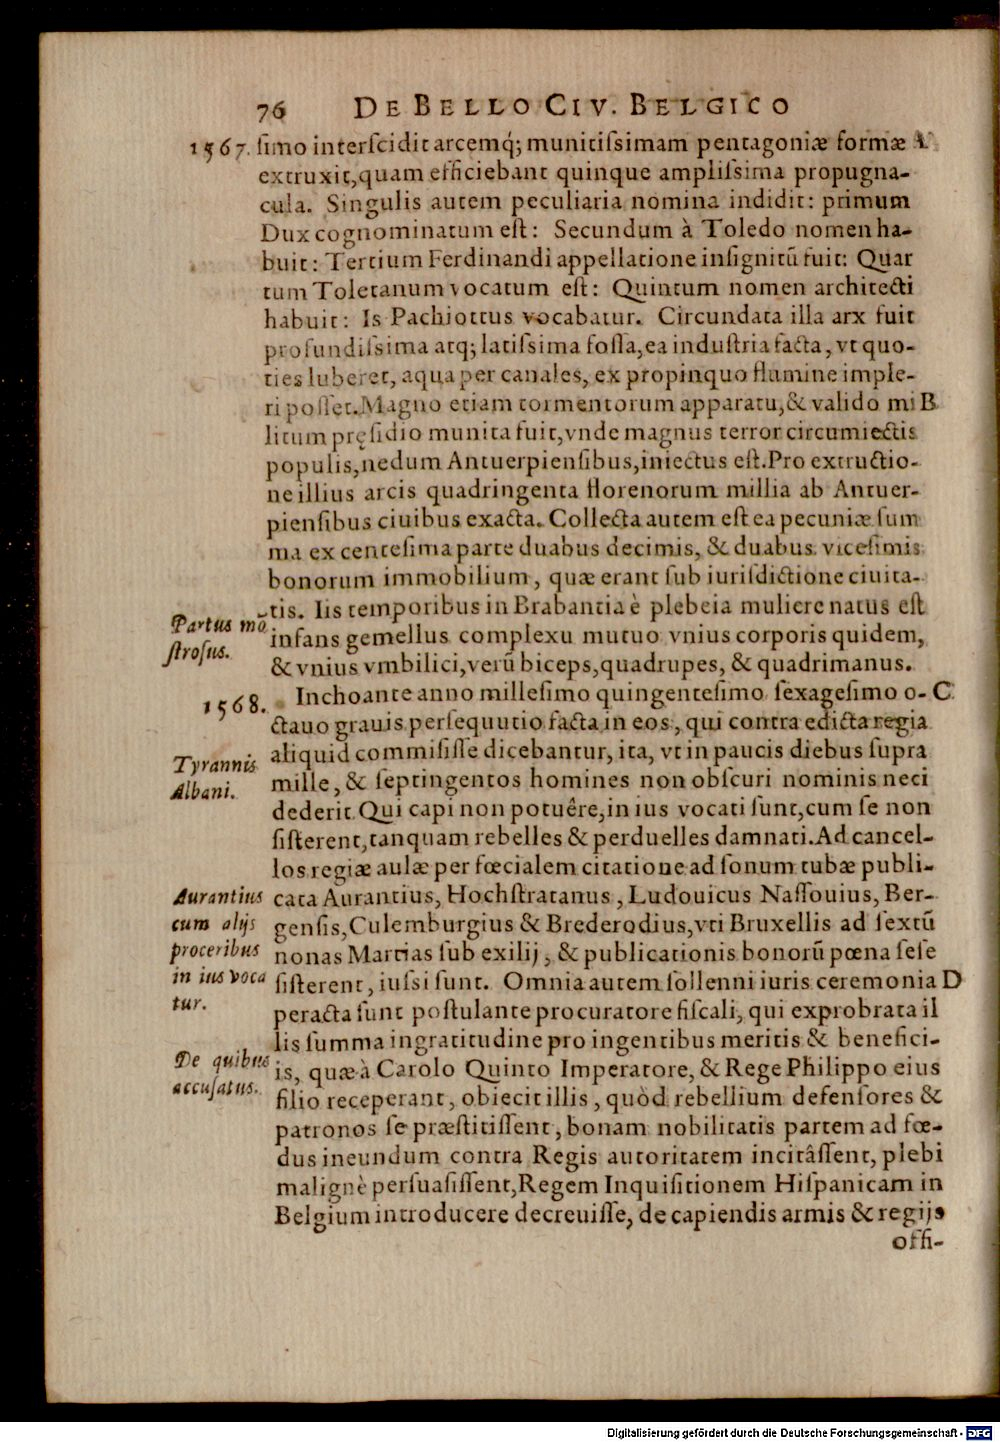 76 DE BELLO CIV. BELGICO
1567. ſimo interſcidit arcemq́; munitiſsimam pentagoniæ formæ A
extruxit, quam efficiebant quinque ampliſsima propugna-
cula. Singulis autem peculiaria nomina indidit: primum
Dux cognominatum eſt: Secundum à Toledo nomen ha-
buit: Tertium Ferdinandi appellatione inſignitũ fuit: Quar
tum Toletanum vocatum eſt: Quintum nomen architecti
habuit: Is Pachiottus vocabatur. Circundata illa arx fuit
profundiſsima atq; latiſsima foſſa, ea induſtria facta, vt quo-
ties luberet, aqua per canales, ex propinquo flumine imple-
ri poſſet. Magno etiam tormentorum apparatu, & valido mi B
litum pręſidio munita fuit, vnde magnus terror circumiectis
populis, nedum Antuerpienſibus, iniectus eſt. Pro extructio-
ne illius arcis quadringenta florenorum millia ab Antuer-
pienſibus ciuibus exacta. Collecta autem eſt ea pecuniæ ſum
ma ex centeſima parte duabus decimis, & duabus viceſimis
bonorum immobilium, quæ erant ſub iuriſdictione ciuita-
tis. Iis temporibus in Brabantia è plebeia muliere natus eſt
Partus mõ
ſtroſus.
infans gemellus complexu mutuo vnius corporis quidem,
& vnius vmbilici, verũ biceps, quadrupes, & quadrimanus.
1568. Inchoante anno milleſimo quingenteſimo ſexageſimo o- C
ctauo grauis perſequutio facta in eos, qui contra edicta regia
Tyrannis
Albani.
aliquid commiſiſſe dicebantur, ita, vt in paucis diebus ſupra
mille, & ſeptingentos homines non obſcuri nominis neci
dederit. Qui capi non potuêre, in ius vocati ſunt, cum ſe non
ſiſterent, tanquam rebelles & perduelles damnati. Ad cancel-
los regiæ aulæ per fœcialem citatione ad ſonum tubæ publi-
Aurantius
cum alijs
proceribus
in ius voca
tur.
cata Aurantius, Hochſtratanus, Ludouicus Naſſouius, Ber-
genſis, Culemburgius & Brederodius, vti Bruxellis ad ſextũ
nonas Martias ſub exilij, & publicationis bonorũ pœna ſeſe
ſiſterent, iuſsi ſunt. Omnia autem ſollenni iuris ceremonia D
peracta ſunt poſtulante procuratore fiſcali, qui exprobrata il
lis ſumma ingratitudine pro ingentibus meritis & benefici-
De quibus
accuſatus.
is, quæ à Carolo Quinto Imperatore, & Rege Philippo eius
filio receperant, obiecit illis, quòd rebellium defenſores &
patronos ſe præſtitiſſent, bonam nobilitatis partem ad fœ-
dus ineundum contra Regis autoritatem incitâſſent, plebi
malignè perſuaſiſſent, Regem Inquiſitionem Hiſpanicam in
Belgium introducere decreuiſſe, de capiendis armis & regijs
offi-
Digitalisierung gefördert durch die Deutsche Forschungsgemeinschaft - DFG